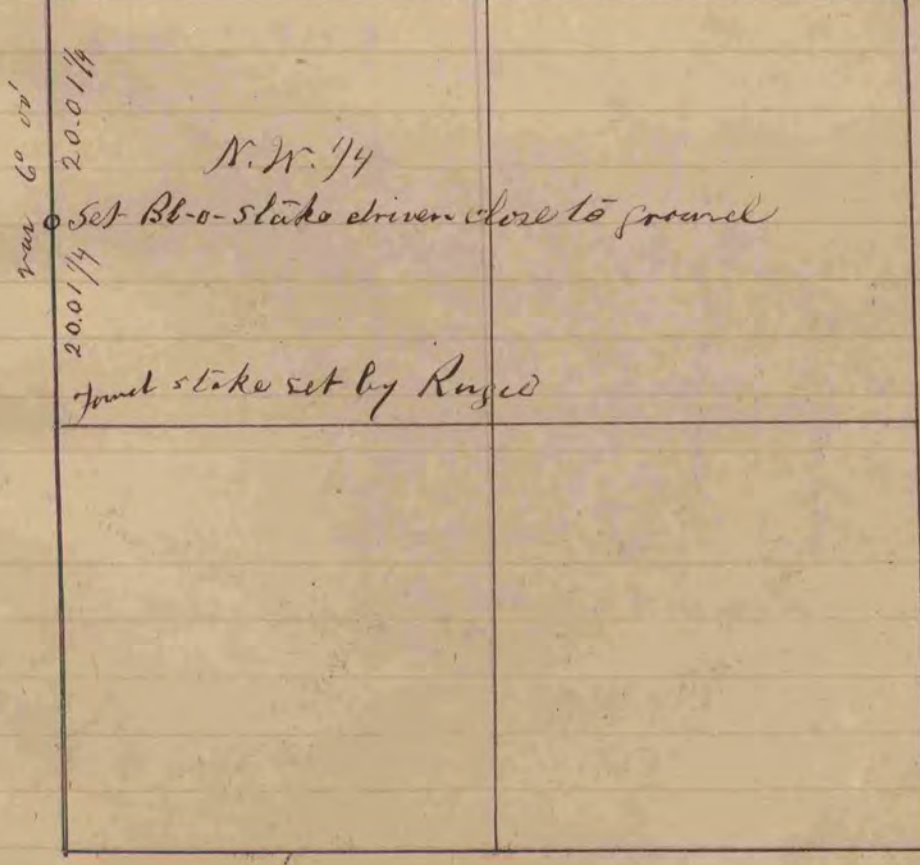 var 6° 00'
20.01 1/4
N.W. 1/4
Set Bl-o-stake driven close to ground
20.01 1/4
Found stake set by